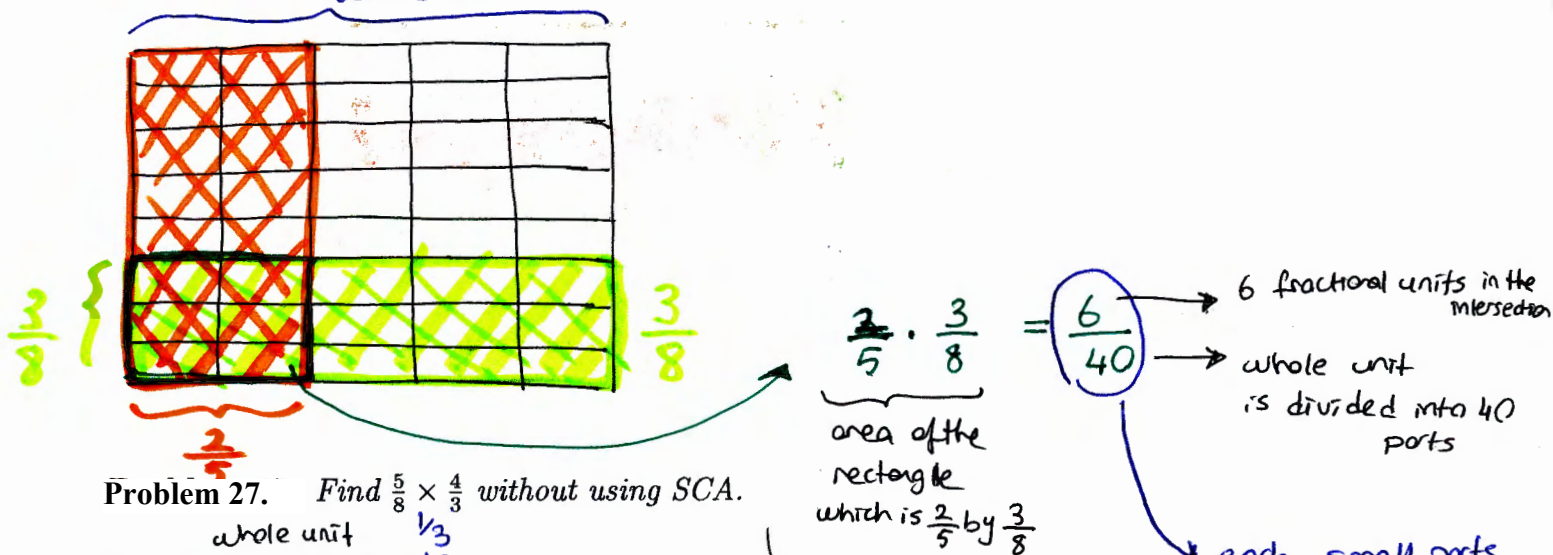 3/8
3/8
2/5 · 3/8 = 6/40
6 fractional units in the
intersection
whole unit
is divided into 40
parts
area of the
rectangle
which is 2/5 by 3/8
2/5
Problem 27. Find 5/8 × 4/3 without using SCA.
whole unit
1/3
small parts